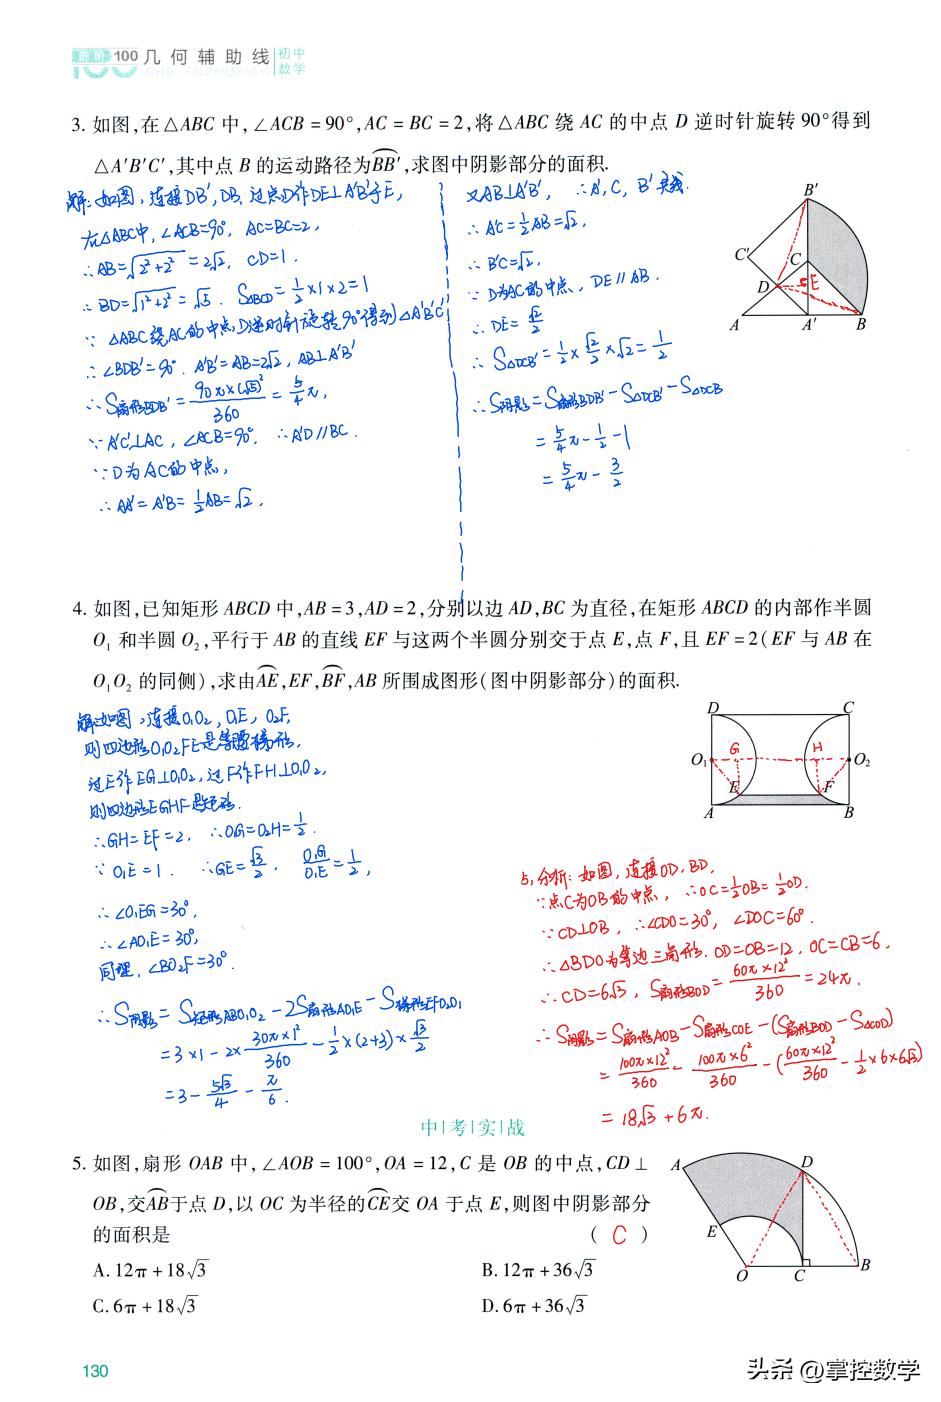 进阶100 几何辅助线 初中数学
JIHE FUZHUXIAN
3. 如图,在△ABC 中,∠ACB = 90°,AC = BC = 2,将 △ABC 绕 AC 的中点 D 逆时针旋转 90°得到
△A′B′C′,其中点 B 的运动路径为BB′,求图中阴影部分的面积.
解:如图,连接DB′,DB,过点D作DE⊥A′B′于E,
在△ABC中,∠ACB=90°,AC=BC=2,
∴AB=√2²+2²=2√2,CD=1.
∴BD=√1²+2²=√5.S△BCD=1/2×1×2=1
∵△ABC绕AC的中点D逆时针旋转90°得到△A′B′C′
∴∠BDB′=90°.A′B′=AB=2√2,AB⊥A′B′
∴S扇形BDB′=90π×(√5)²/360=5/4π,
∵A′C′⊥AC,∠ACB=90°,∴A′D∥BC.
∵D为AC的中点,
∴AA′=A′B=1/2AB=√2,
又AB⊥A′B′,∴A′,C,B′共线.
∴A′C=1/2AB=√2,
∴B′C=√2,
∵D为AC的中点,DE∥AB.
∴DE=√2/2
∴S△DCB′=1/2×√2/2×√2=1/2
∴S阴影=S扇形BDB′-S△DCB′-S△DCB
=5/4π-1/2-1
=5/4π-3/2
B′
C′
C
D
E
A
A′
B
4. 如图,已知矩形 ABCD 中,AB = 3,AD = 2,分别以边 AD,BC 为直径,在矩形 ABCD 的内部作半圆
O₁ 和半圆 O₂,平行于 AB 的直线 EF 与这两个半圆分别交于点 E,点 F,且 EF = 2(EF 与 AB 在
O₁O₂ 的同侧),求由AE,EF,BF,AB 所围成图形(图中阴影部分)的面积.
解:如图,连接O₁O₂,O₁E,O₂F,
则四边形O₁O₂FE是等腰梯形,
过E作EG⊥O₁O₂,过F作FH⊥O₁O₂,
则四边形EGHF是矩形.
∴GH=EF=2,∴O₁G=O₂H=1/2.
∵O₁E=1.∴GE=√3/2,O₁G/O₁E=1/2,
∴∠O₁EG=30°,
∴∠AO₁E=30°,
同理,∠BO₂F=30°.
∴S阴影=S矩形ABO₂O₁-2S扇形AO₁E-S梯形EFO₂O₁
=3×1-2×30π×1²/360-1/2×(2+3)×√3/2
=3-5√3/4-π/6.
D
C
G
H
O₁
O₂
E
F
A
B
5,分析:如图,连接OD,BD,
∵点C为OB的中点,∴OC=1/2OB=1/2OD.
∵CD⊥OB,∴∠CDO=30°,∠DOC=60°.
∴△BDO为等边三角形.OD=OB=12,OC=CB=6,
∴CD=6√3,S扇形BOD=60π×12²/360=24π,
∴S阴影=S扇形AOB-S扇形COE-(S扇形BOD-S△COD)
=100π×12²/360-100π×6²/360-(60π×12²/360-1/2×6×6√3)
=18√3+6π.
中考实战
5. 如图,扇形 OAB 中,∠AOB = 100°,OA = 12,C 是 OB 的中点,CD ⊥
OB,交AB于点 D,以 OC 为半径的CE交 OA 于点 E,则图中阴影部分
的面积是 ( C )
A. 12π + 18√3 B. 12π + 36√3
C. 6π + 18√3 D. 6π + 36√3
A
D
E
O
C
B
130
头条 @掌控数学